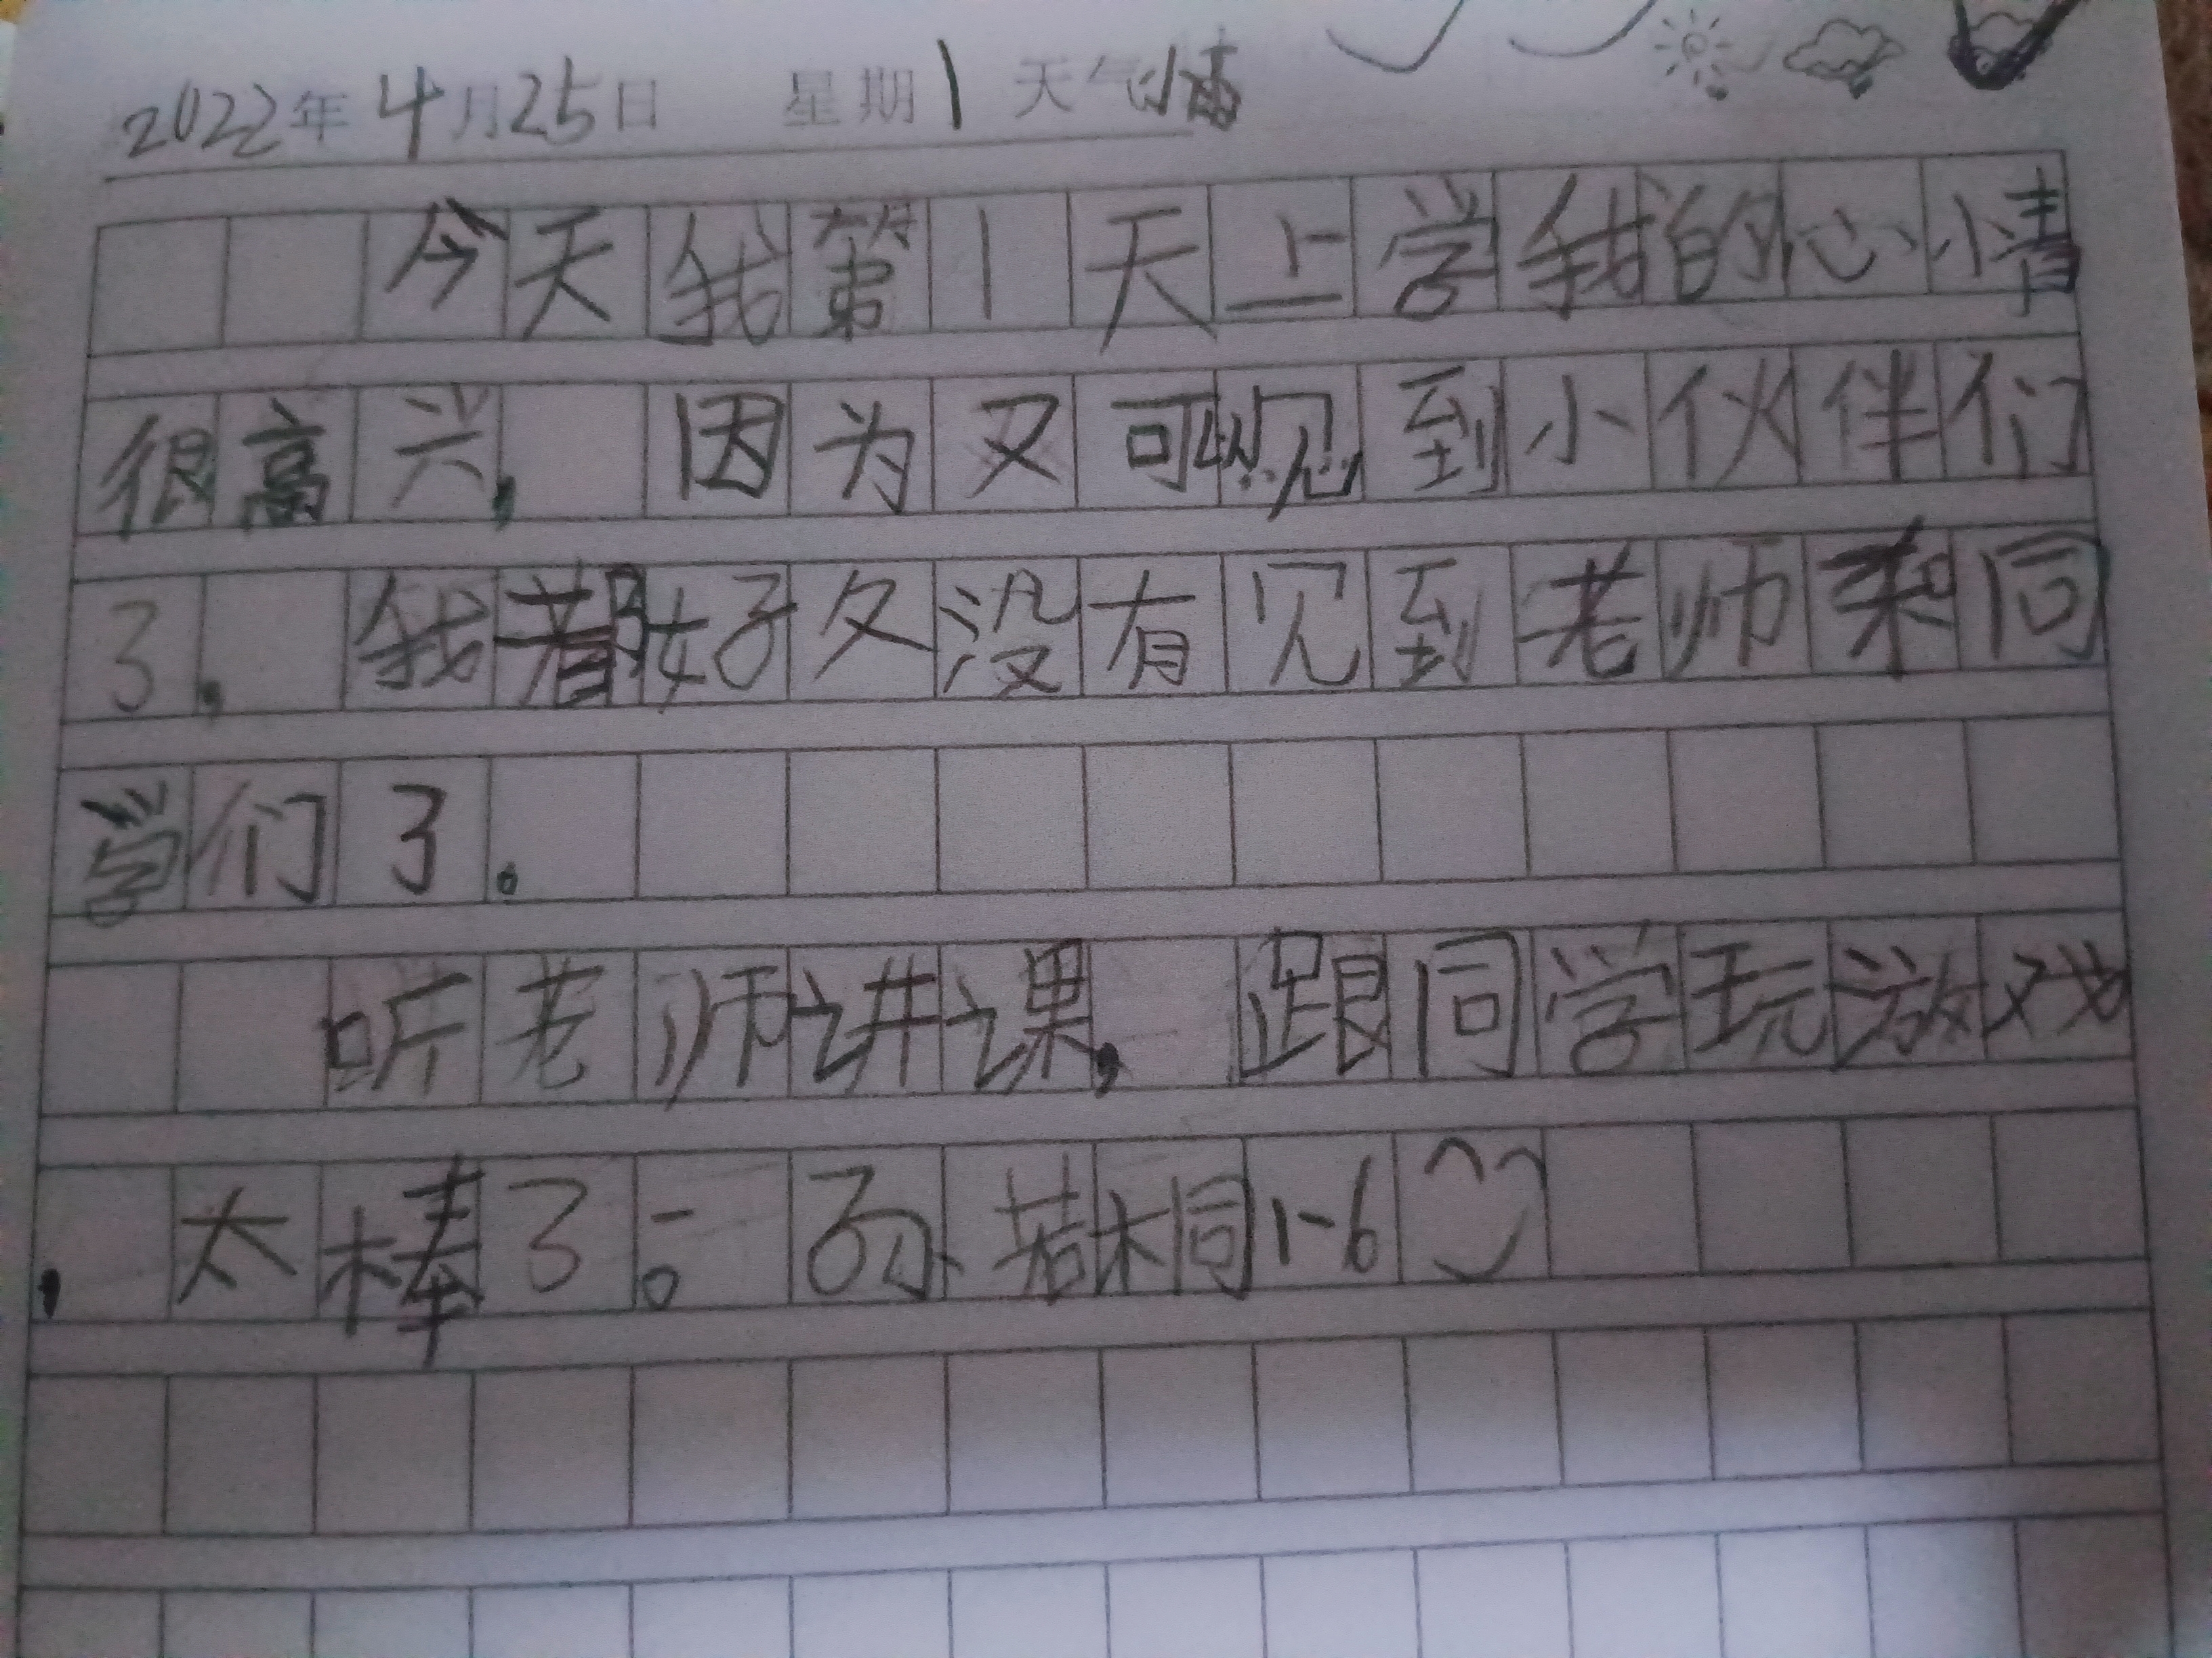 2022年4月25日 星期1 天气
今天我第1天上学我的心情
很高兴,因为又可以见到小伙伴们
了.我都好久没有见到老师和同
学们了。
听老师讲课,跟同学玩游戏
,太棒了。 1-6